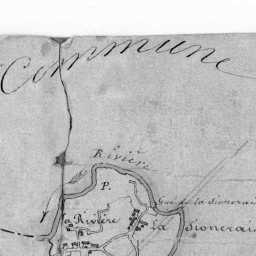 Commune
Rivière
P.
Gué de la Sionerai
la Rivière
la Sionerai